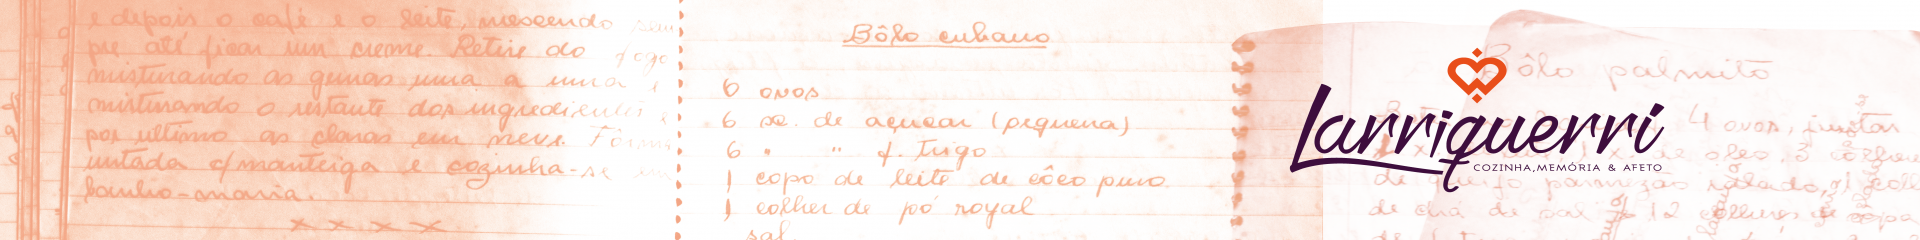 e depois o café e o leite, mexendo sem
pre até ficar um creme. Retire do fogo
misturando as gemas uma a uma e
misturando o restante dos ingredientes e
por ultimo as claras em neve. Fôrma
untada c/ manteiga e cozinha-se em
banho-maria.
x x x x
Bôlo cubano
6 ovos
6 xc. de açucar (pequena)
6 " " f. trigo
1 copo de leite de côco puro
1 colher de pó royal
sal.
Bôlo palmito
4 ovos, juntar
de oleo, 3 colheres
de queijo parmezão ralado, 1 colh
de chá de sal 12 colheres de sopa
de trigo
Larriquerri
COZINHA, MEMÓRIA & AFETO